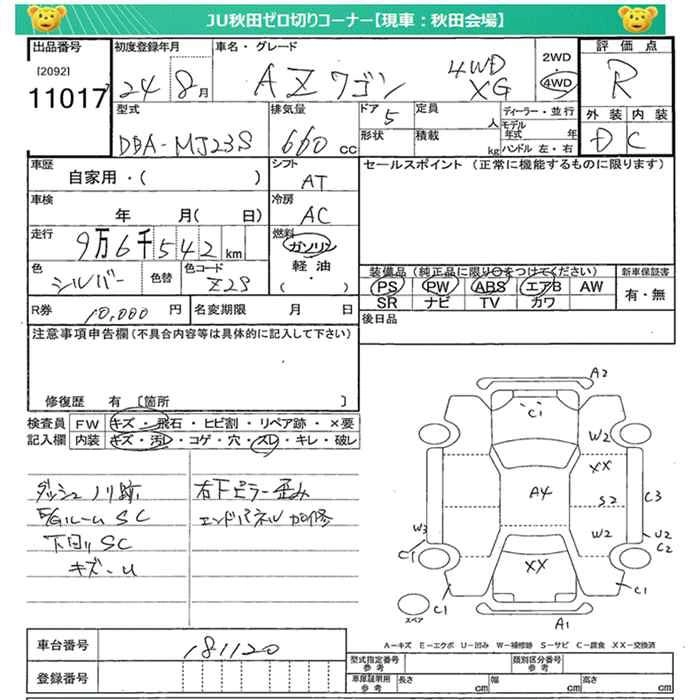 JU秋田ゼロ切りコーナー【現車：秋田会場】
出品番号 初度登録年月 車名・グレード 2WD 4WD 評価点
[2092]
11017 24 8月 AZワゴン 4WD XG R
型式 排気量 ドア 定員 ディーラー・並行 外装 内装
DBA-MJ23S 660cc 5 人 モデル年式 年 D C
形状 積載 kg ハンドル 左・右
車歴 シフト セールスポイント（正常に機能するものに限ります）
自家用・( ) AT
車検 冷房
年 月( 日) AC
走行 燃料
9万6千542km ガソリン
軽油
( ・ )
色 色替 色コード
シルバー Z2S
装備品（純正品に限り○をつけてください） 新車保証書
PS PW ABS エアB AW 有・無
SR ナビ TV カワ
R券 10,000円 名変期限 月 日 後日品
注意事項申告欄（不具合内容等は具体的に記入して下さい）
修復歴 有 [箇所 ]
検査員 FW キズ・飛石・ヒビ割・リペア跡・×要
記入欄 内装 キズ・汚レ・コゲ・穴・スレ・キレ・破レ
ダッシュ ノリ跡 右下ピラー歪み
E/Gルーム SC エンドパネル加修
下回り SC
キズ・U
A2
C1
W2
XX
A4 S2 C3
W3 W2 U2
C1 C2
XX
C1 C1
スペア A1
A－キズ E－エクボ U－凹み W－補修跡 S－サビ C－腐食 XX－交換済
車台番号 181120 型式指定番号 参考 類別区分番号 参考
登録番号 車庫証明用 参考 長さ cm 幅 cm 高さ cm